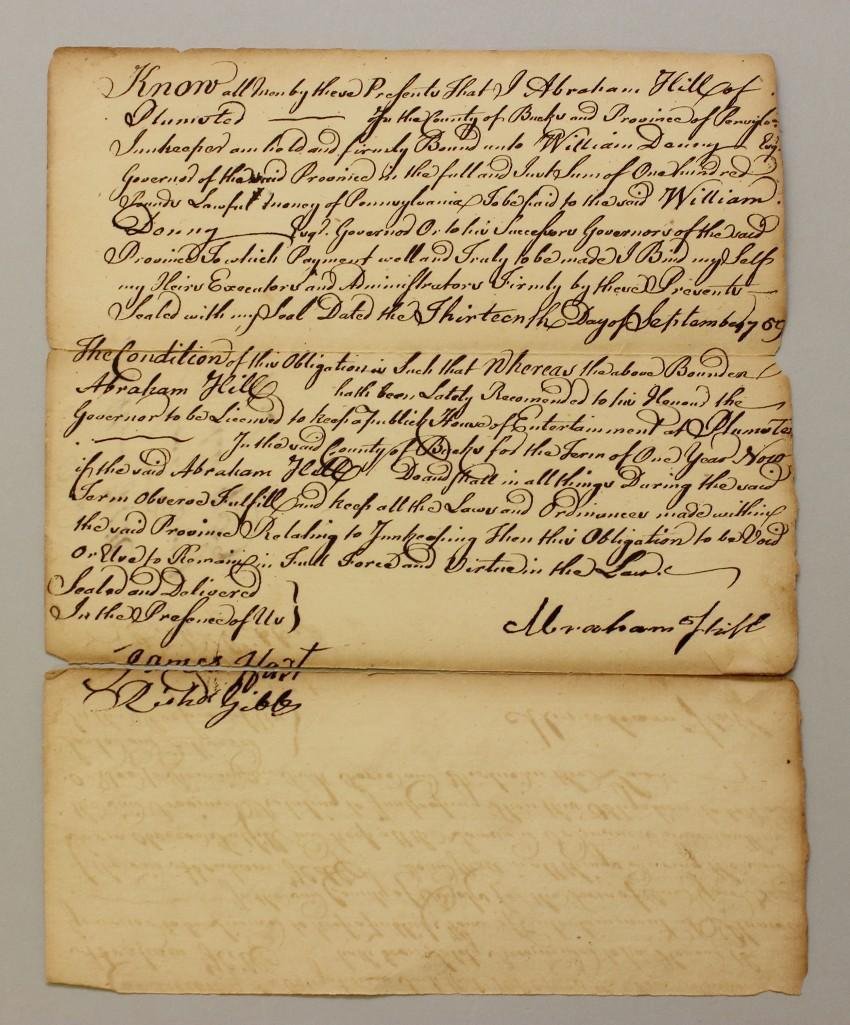 Know all Men by these Presents That I Abraham Hill of
Plumsted In the County of Bucks and Province of Pensylva
Innkeeper am held and firmly Bound unto William Denny Esqr
Governor of the said Province in the full and Just Sum of One hundred
Pounds Lawful money of Pennsylvania To be paid to the said William
Denny Esqr. Governor Or to his Successors Governors of the said
Province To which Payment well and Truly to be made I Bind my Self
my Heirs Executors and Administrators Firmly by these Presents
Sealed with my Seal Dated the Thirteenth Day of September 1759
The Condition of this Obligation is Such that Whereas the above Bounden
Abraham Hill hath been Lately Recomended to his Honour the
Governor to be Licensed to keep a publick House of Entertainment at Plumsted
In the said County of Bucks for the Term of One Year Now
if the said Abraham Hill Do and shall in all things During the said
Term Observe Fulfill and keep all the Laws and Ordinances made within
the said Province Relating to Innkeeping Then this Obligation to be Void
Or Else to Remain in Full Force and Virtue in the Law.
Sealed and Delivered
In the Presence of Us
Abraham Hill
James Hart
Richd Gibbs